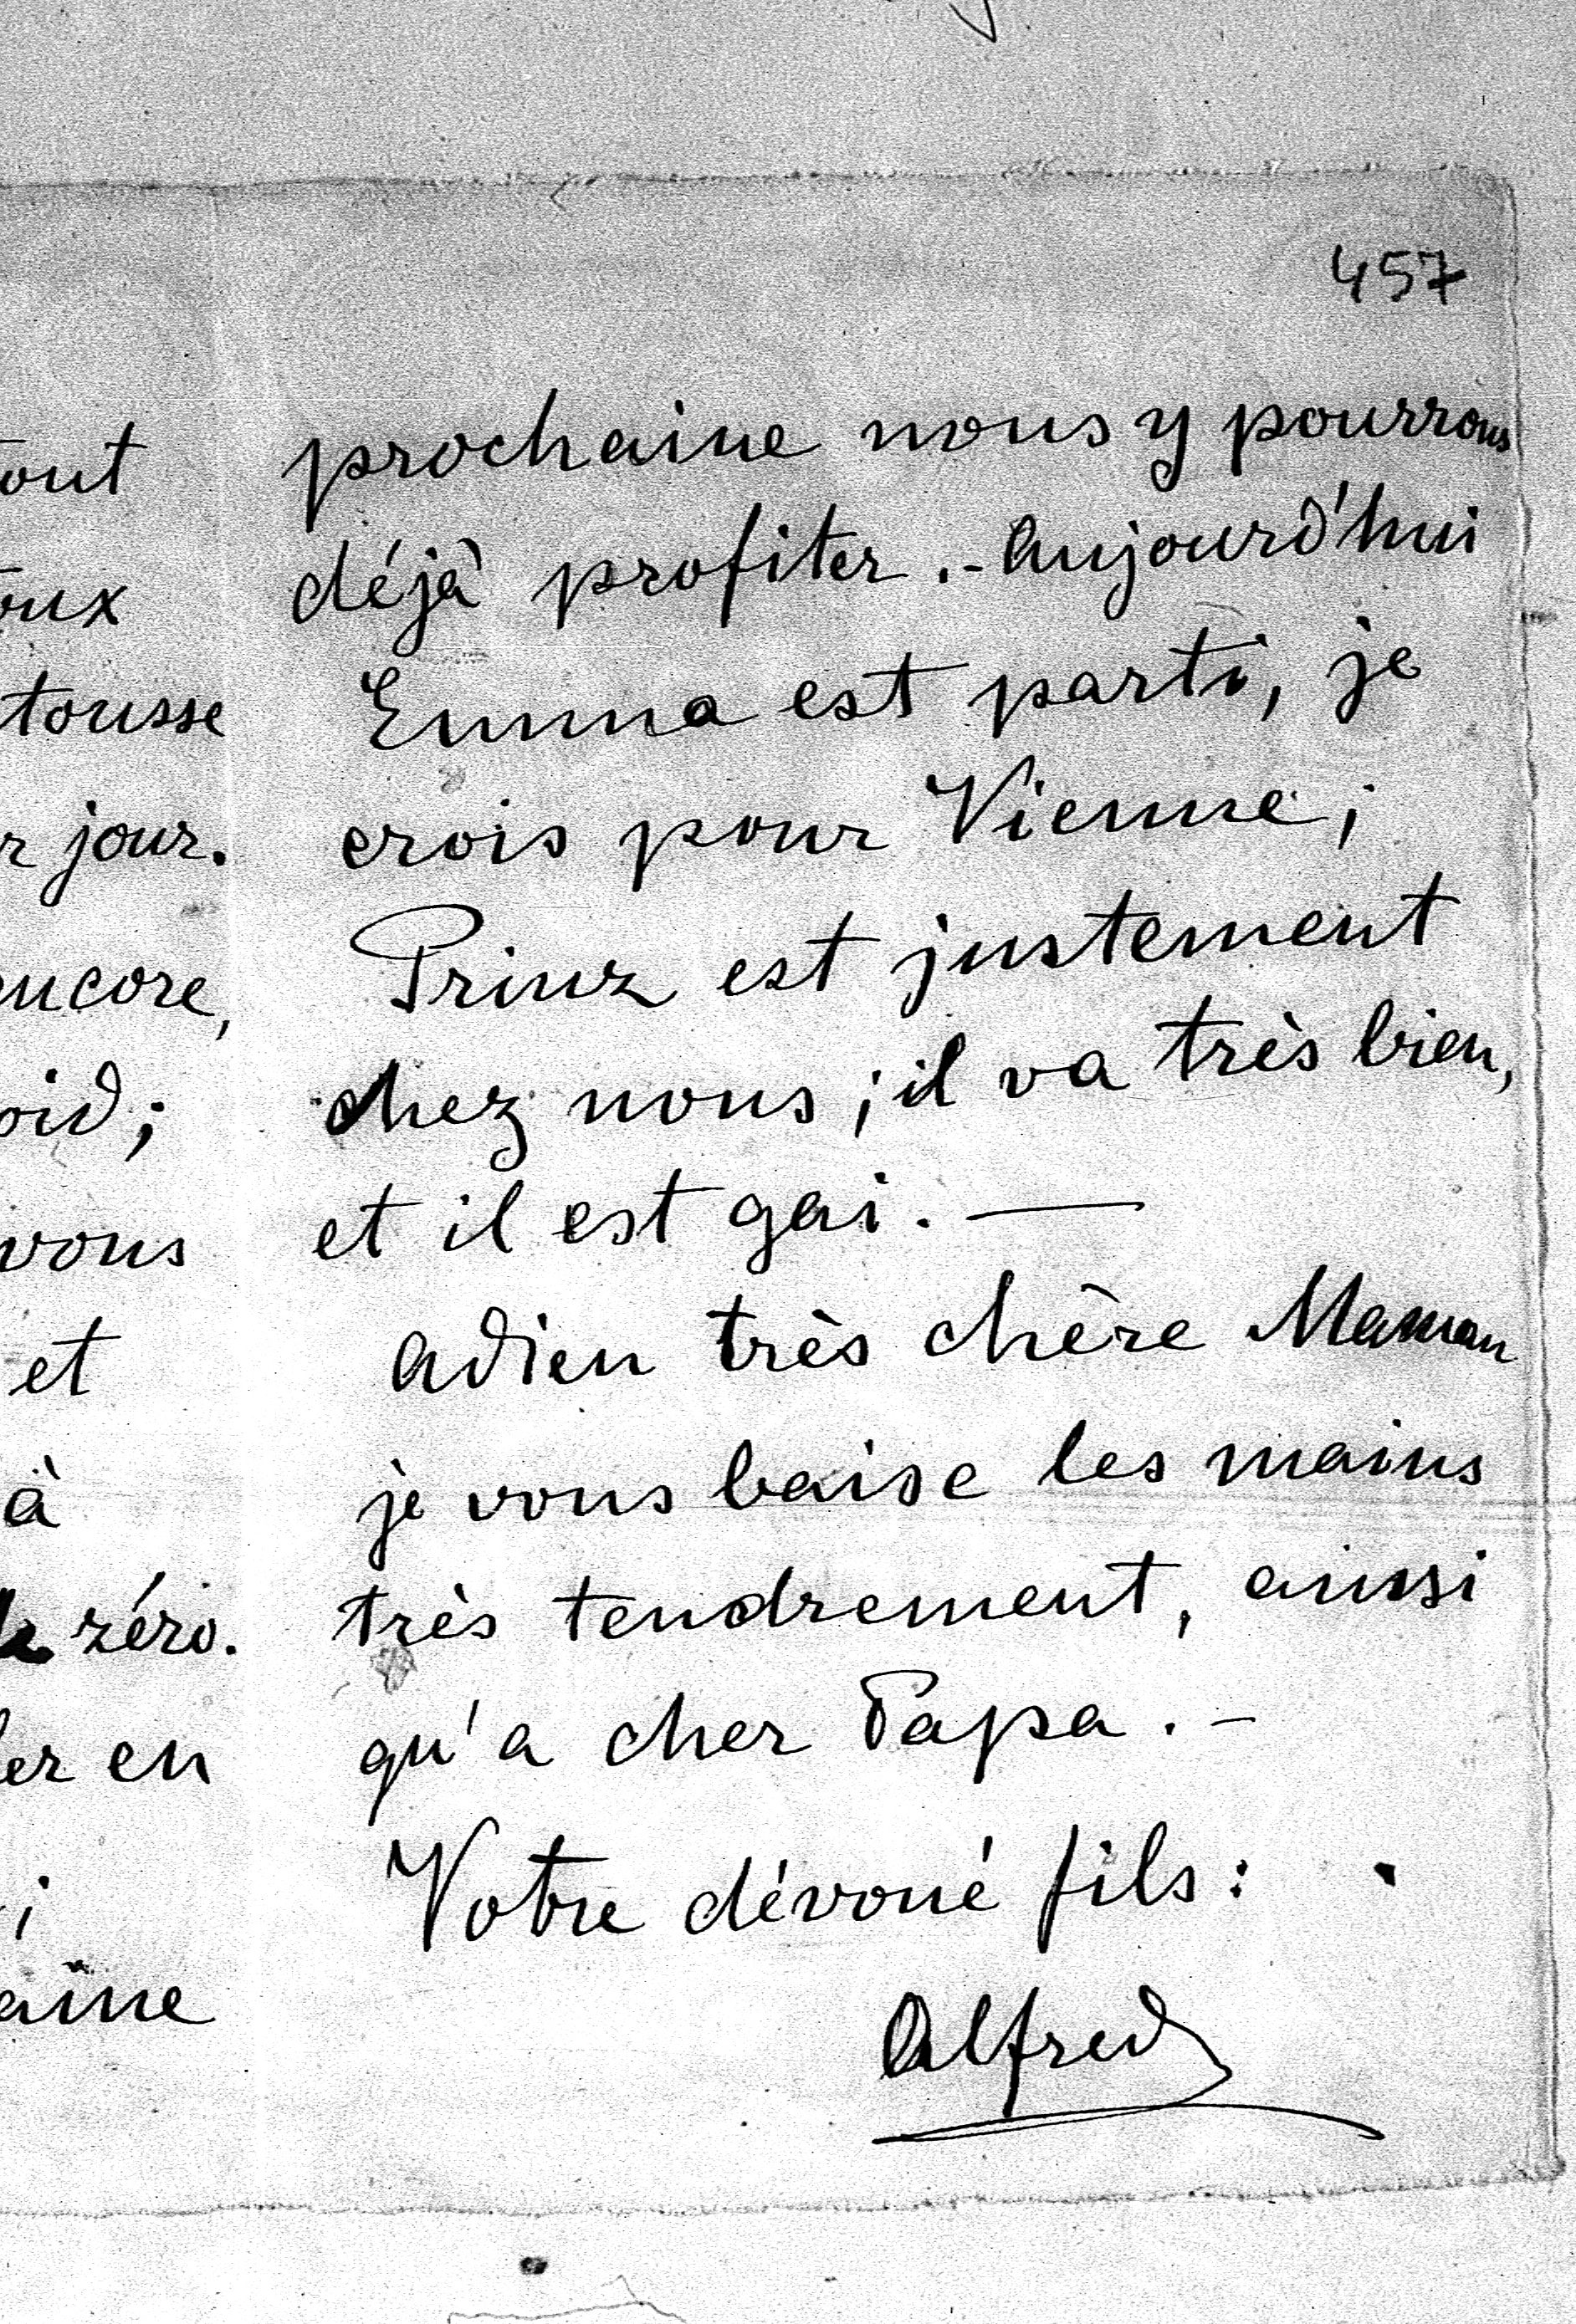 457
out
oux
tousse
r jour.
encore,
oid;
vous
et
à
zéro.
er en
i
aine
prochaine nous y pourrons
déjà profiter.- Aujourd'hui
Emma est parti, je
crois pour Vienne;
Prinz est justement
chez nous; il va très bien,
et il est gai. —
Adieu très chère Maman
je vous baise les mains
très tendrement, ainsi
qu'a cher Papa. -
Votre dévoué fils:
Alfred